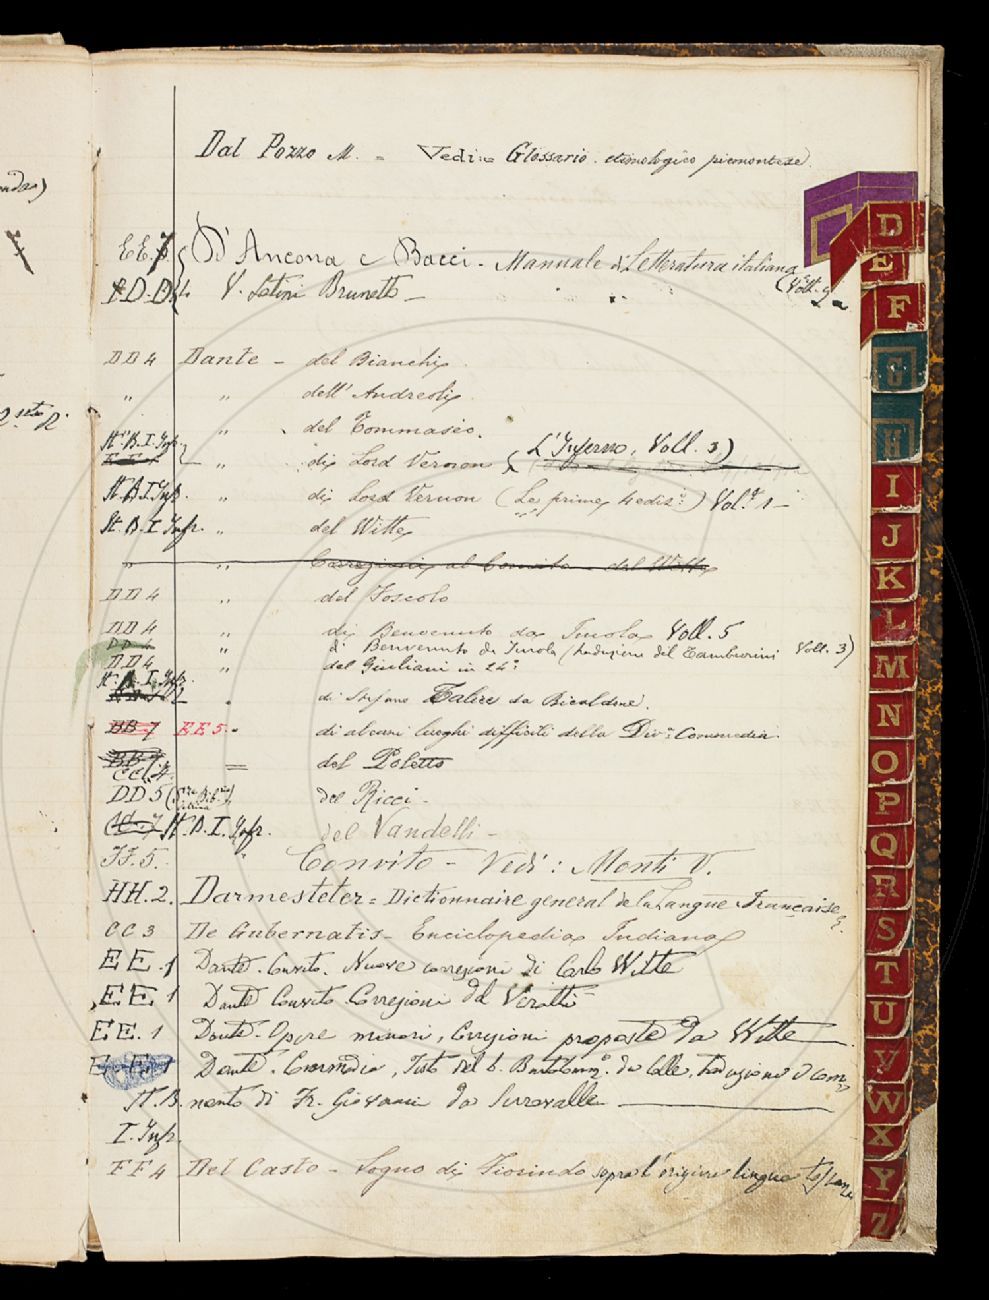 Dal Pozzo M. = Vedi = Glossario etimologico piemontese.
EE. D'Ancona e Bacci - Manuale di Letteratura italiana
(Voll. 2
V. Latini Brunetto -
DD 4 Dante - del Bianchi
" " dell' Andreoli
" . del Tommaseo.
St. B. I. Infr. " di Lord Vernon (L'Inferno, Voll. 3)
St. B. I Infr. " di Lord Vernon (Le prime 4 ediz.i) Vol.e 1 -
St. B. I Infr. " del Witte
" " Correzioni al Convito - del Witte
DD 4 " del Foscolo
DD 4 " di Benvenuto da Imola Voll. 5
DD 4 " di Benvenuto da Imola (traduzione del Tamburini Voll. 3)
DD 4 " del Giuliani in 24°
St. B. I. Infr. " di Stefano Talice da Ricaldone.
BB 7 EE 5. " di alcuni luoghi difficili della Div.a Commedia.
CC. = del Poletto
DD 5 del Ricci -
St. B. I. Infr. del Vandelli -
FF. 5. " Convito - Vedi: Monti V.
HH. 2. Darmesteter = Dictionnaire general de la Langue Française
CC 3 De Gubernatis - Enciclopedia Indiana
EE. 1 Dante. Convito. Nuove correzioni di Carlo Witte
EE. 1 Dante Convito. Correzioni del
EE. 1 Dante. Opere minori, Correzioni proposte da Witte
E. E. 1 Dante. Commedia, Testo del b. Bartolomm.o da Colle, traduzione e com=
St. B. mento di Fr. Giovanni da Serravalle
I. Infr.
FF 4 Del Casto - Sogno di Fiorindo sopra l'origine lingua toscana
D
E
F
G
H
I
J
K
L
M
N
O
P
Q
R
S
T
U
V
W
X
Y
Z